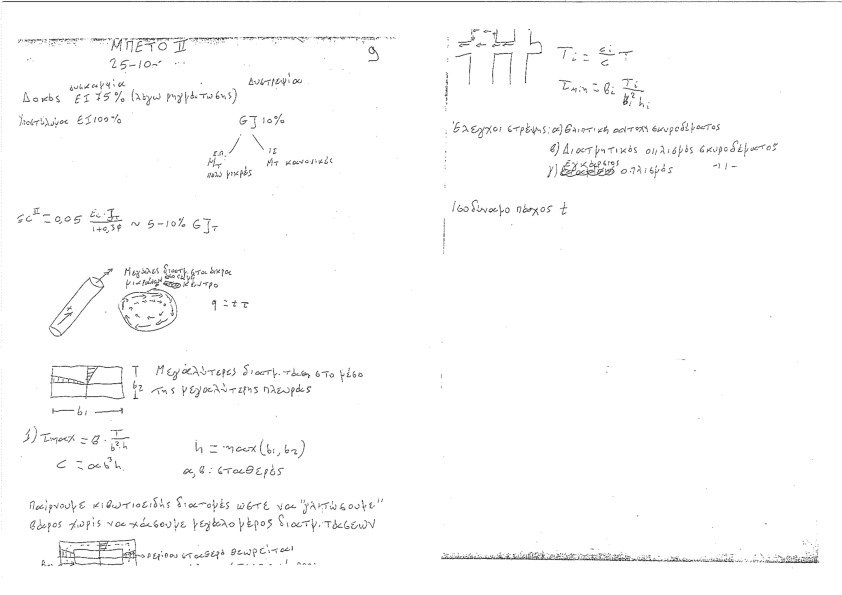 ΜΠΕΤΟ II
25-10-
9
δυσκαμψία
Δυστρεψία
Δοκός EI 75% (λόγω ρηγμάτωσης)
Υποστύλωμα EI 100%
GJ 10%
Μτ πολύ μικρός
Μτ κανονικός
= 0,05 ~ 5-10% GJT
Μεγάλες διατμ. στα άκρα
μικρές κέντρο
q = tτ
Μεγαλύτερες διατμ. τάσεις στο μέσο
της μεγαλύτερης πλευράς
b2
b1
1) τmax = β · T/b²·h
h = max(b1, b2)
C = αb³h
α, β : σταθερές
Παίρνουμε κιβωτιοειδής διατομές ώστε να "γλιτώσουμε"
βάρος χωρίς να χάσουμε μεγάλο μέρος διατμ. τάσεων
περίπου σταθερό θεωρείται
Τi = ci/c T
τmin = βi Ti/bi²hi
Έλεγχοι στρέψης: α) Θλιπτική αντοχή σκυροδέματος
β) Διατμητικός οπλισμός σκυροδέματος
γ) εγκάρσιος οπλισμός -||-
Ισοδύναμο πάχος t